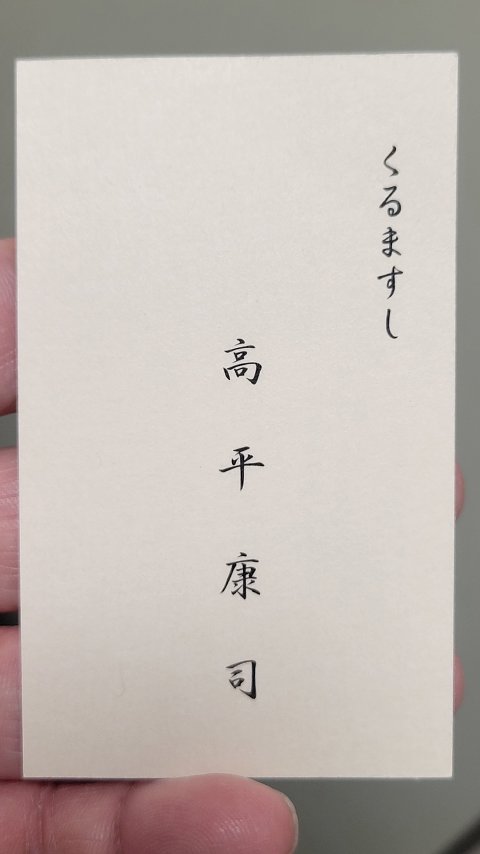 くるますし
高平康司